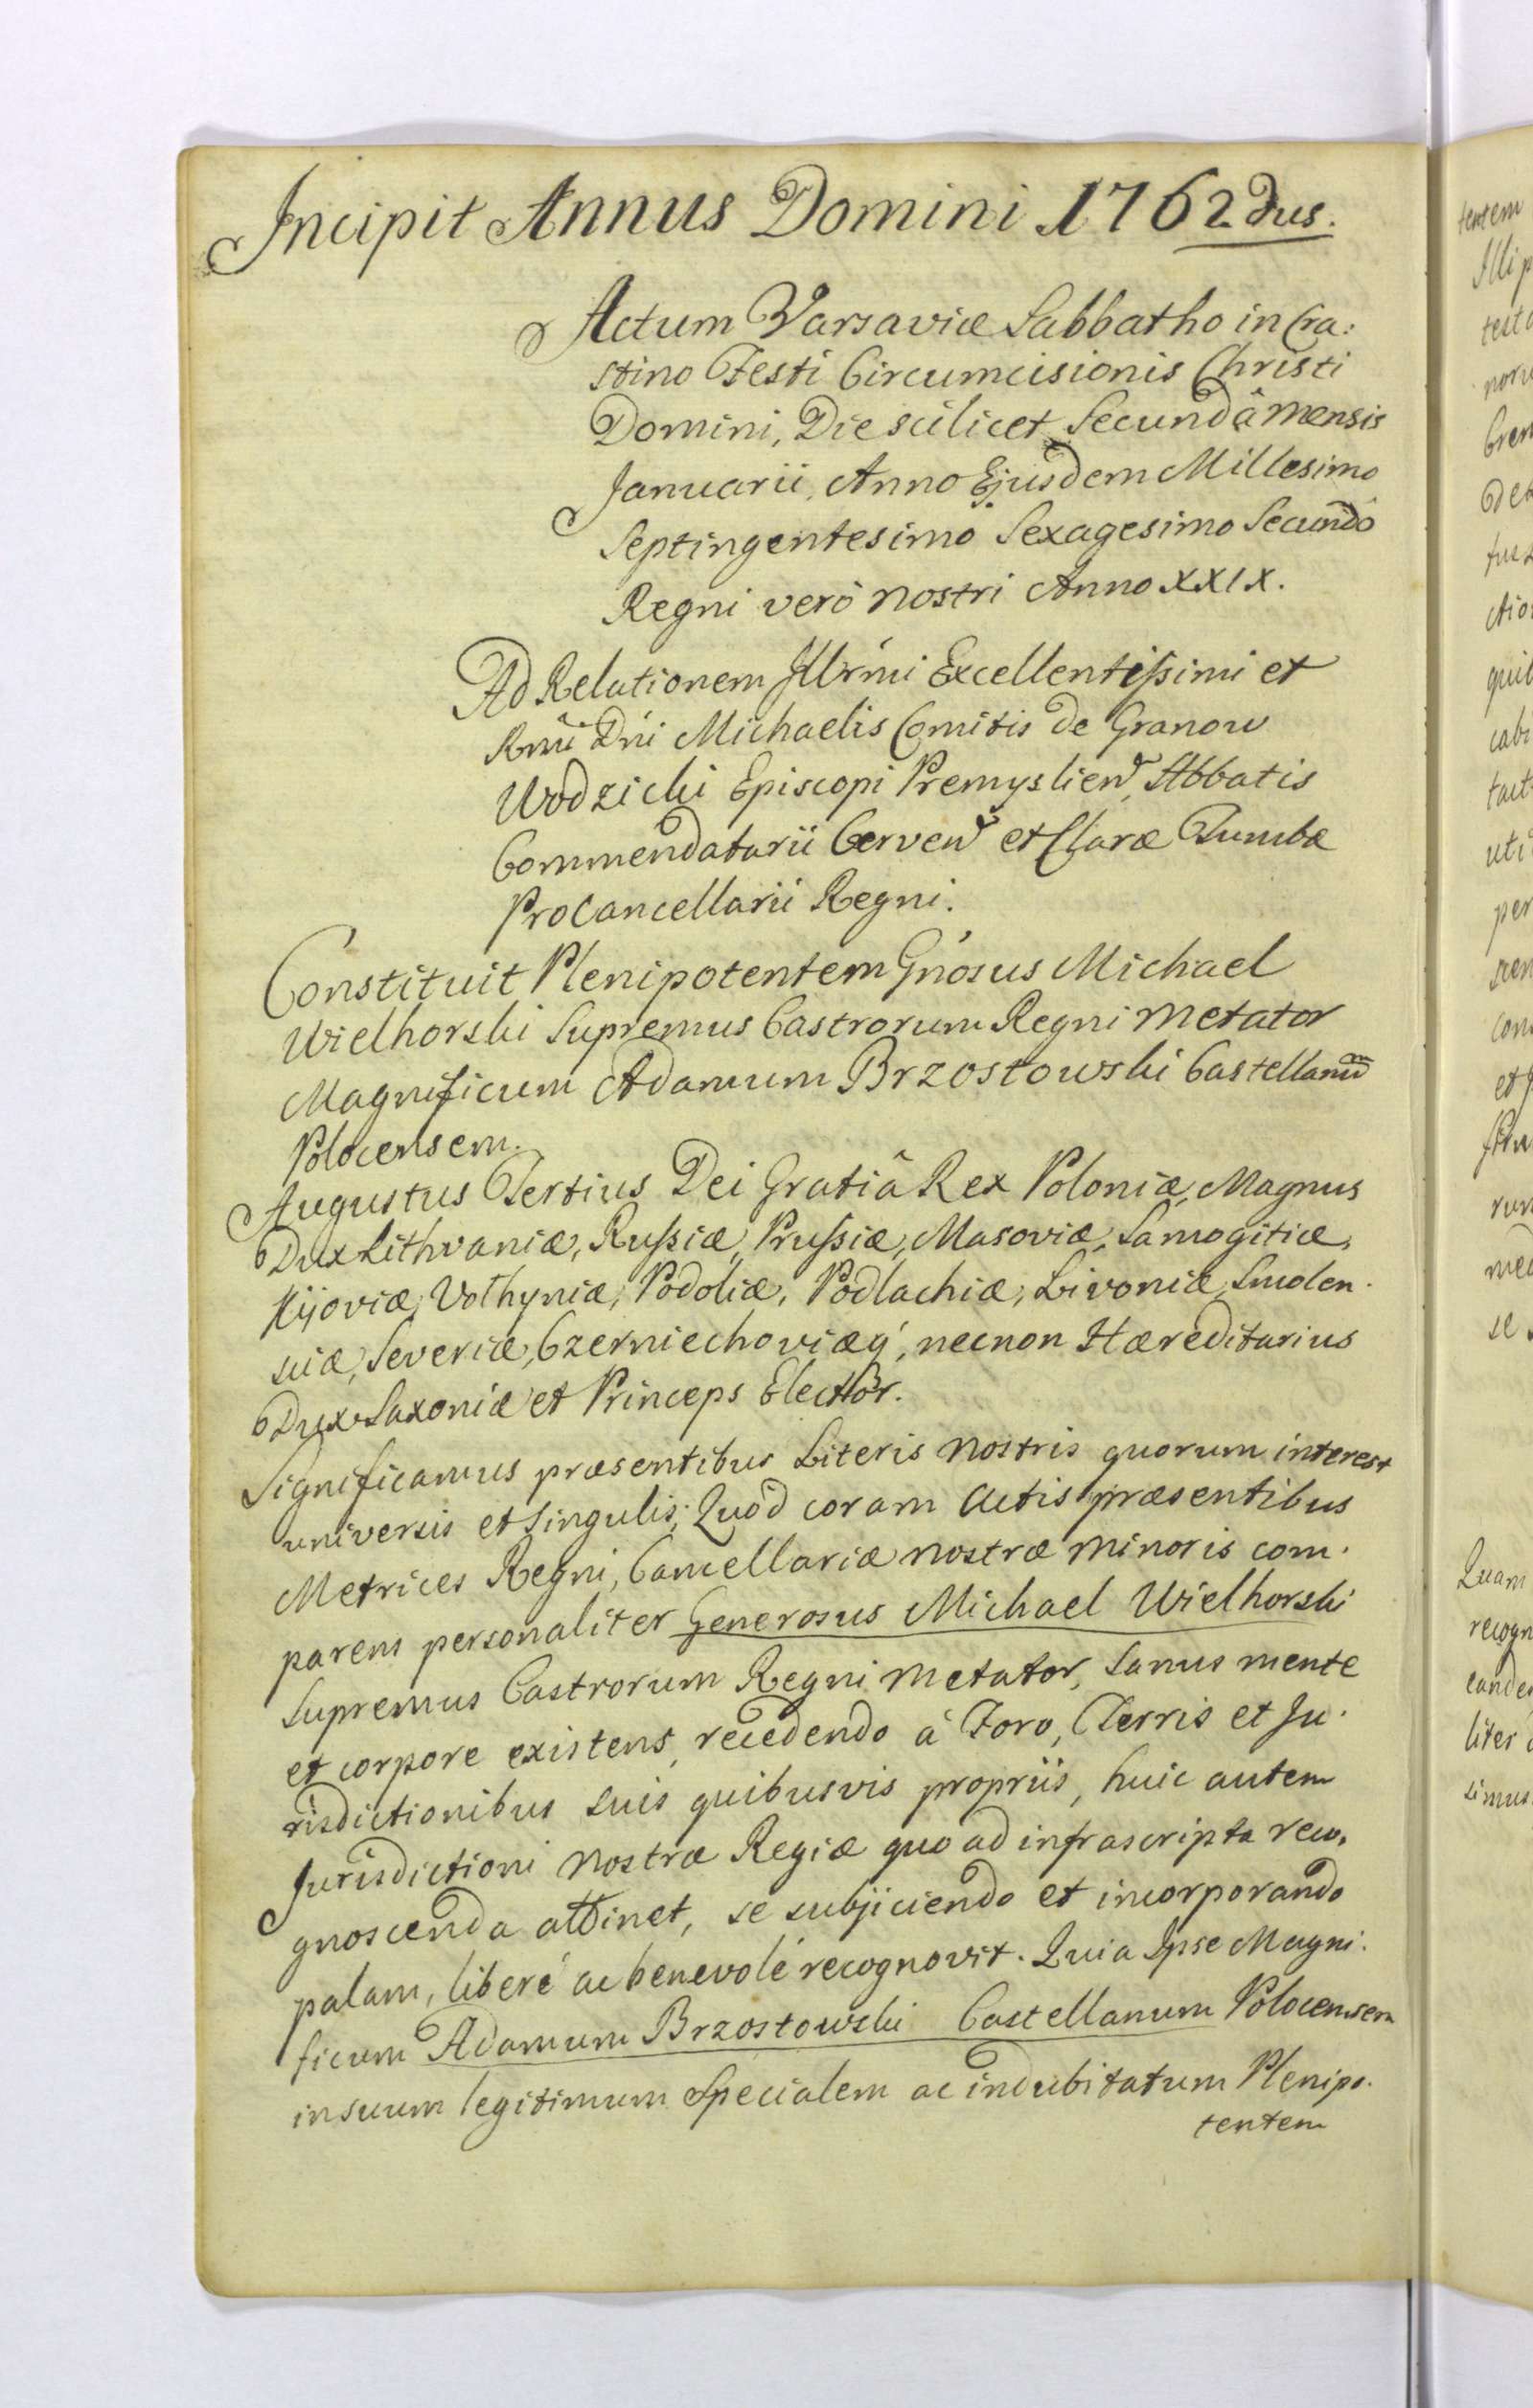 Incipit Annus Domini 1762dus.
Actum Varsaviæ Sabbatho in Cra:
stino Festi Circumcisionis Christi
Domini, Die scilicet Secundâ mensis
Januarii, Anno Ejusdem Millesimo
Septingentesimo Sexagesimo Secundô
Regni verò nostri Anno XXIX.
Ad Relationem Illrmi Excellentissimi et
Rmi Dni Michaelis Comitis de Granow
Wodzicki Episcopi Premyslien, Abbatis
Commendatarii Cerven et Claræ Tumbæ
ProCancellarii Regni.
Constituit Plenipotentem Gnosus Michael
Wielhorski Supremus Castrorum Regni Metator
Magnificum Adamum Brzostowski Castellanum
Polocensem.
Augustus Tertius Dei Gratiâ Rex Poloniæ, Magnus
Dux Lithvaniæ, Russiæ, Prussiæ, Masoviæ, Samogitiæ,
Kijoviæ, Volhyniæ, Podoliæ, Podlachiæ, Livoniæ, Smolen.
sciæ, Severiæ, Czerniechoviæq, necnon Hæreditarius
Dux Saxoniæ et Princeps Elector.
Significamus præsentibus Literis nostris quorum interest
universis et singulis; Quòd coram Actis præsentibus
Metrices Regni, Cancellariæ nostræ minoris com.
parens personaliter Generosus Michael Wielhorski
Supremus Castrorum Regni Metator, sanus mente
et corpore existens, recedendo à Foro, Terris et Ju.
risdictionibus suis quibusvis propriis, huic autem
Jurisdictioni nostræ Regiæ quo ad infrascripta reco.
gnoscenda attinet, se subjiciendo et incorporando
palam, liberé ac benevolé recognovit. Quia Ipse Magni.
ficum Adamum Brzostowski Castellanum Polocensem
in suum legitimum Specialem ac indubitatum Plenipo.
tentem